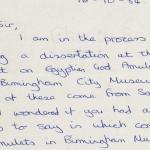 18-10-84
Sir,
I am in the process
ng a dissertation at th
t on Egyptian God Amul
Birmingham City Museu
of these come from Sa
I wondered if you had a
s to say in which con
mulets in Birmingham Mu